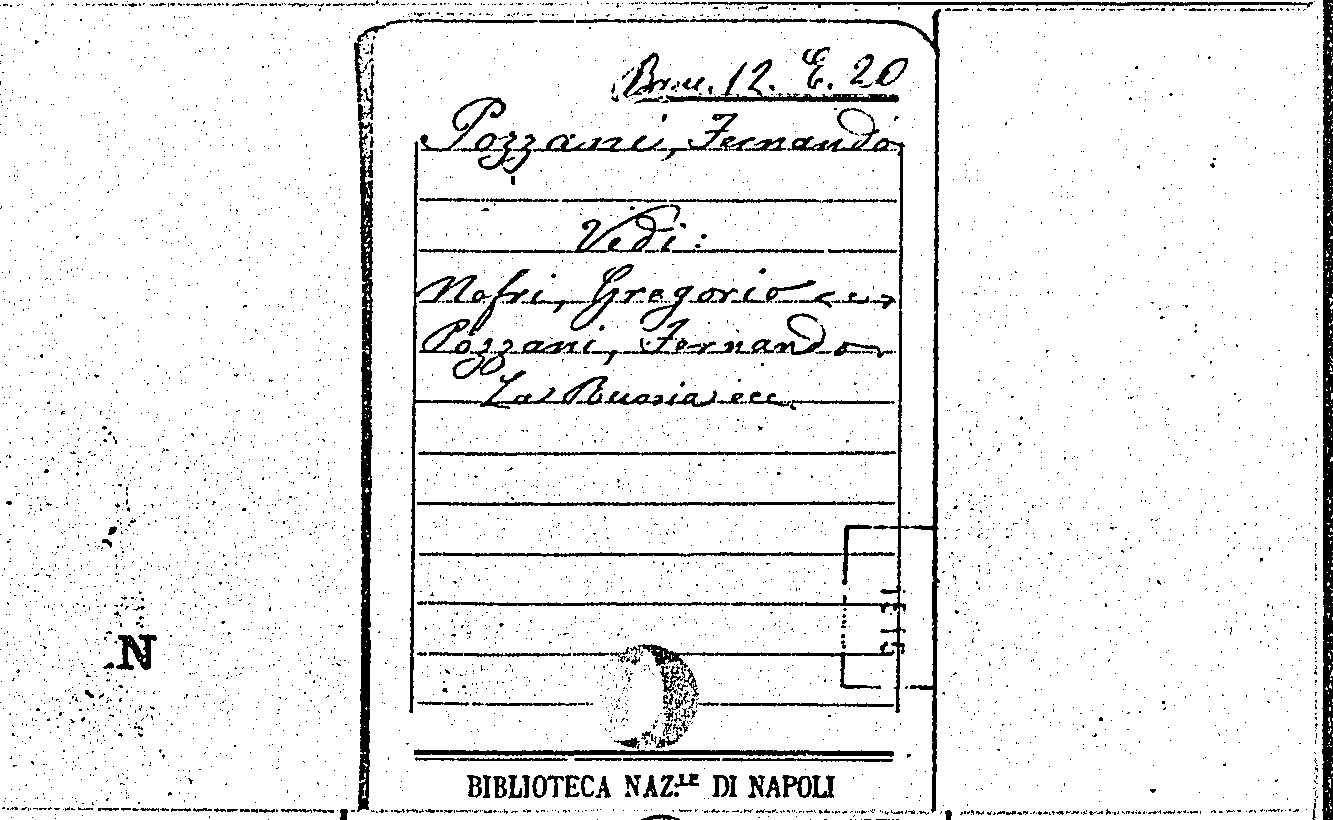 Brun. 12. E. 20
Pozzani, Fernando
Vedi:
Nofri, Gregorio e
Pozzani, Fernando
La Bugia ecc.
N
BIBLIOTECA NAZ:LE DI NAPOLI